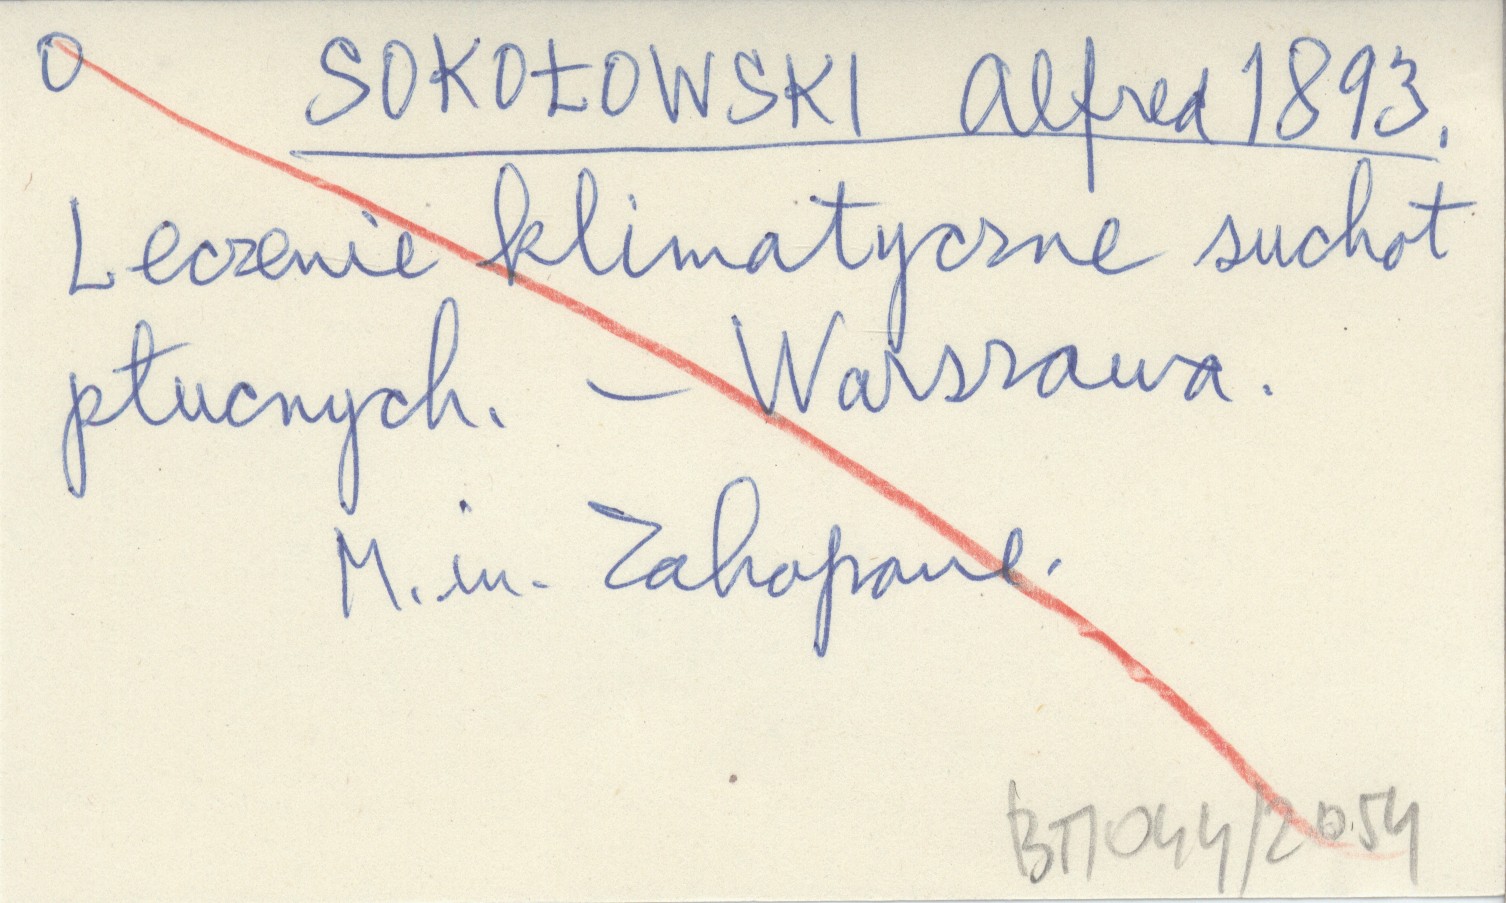 O SOKOŁOWSKI Alfred 1893.
Leczenie klimatyczne suchot
płucnych. – Warszawa.
M.in. Zakopane.